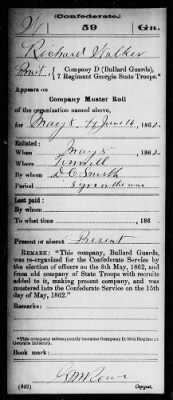 (Confederate.)
W 59 Ga.
Richard Walker
Privt., Company D (Bullard Guards),
7 Regiment Georgia State Troops.*
Appears on
Company Muster Roll
of the organization named above,
for May 8 to June 16, 1862.
Enlisted:
When May 8, 1862.
Where
By whom D C Smith
Period 3 yrs or the war
Last paid:
By whom
To what time , 186 .
Present or absent Present
REMARK: "This company, Bullard Guards,
was re-organized for the Confederate Service by
the election of officers on the 8th May, 1862, and
from old company of State Troops with recruits
added to it, making present company, and was
mustered into the Confederate Service on the 15th
day of May, 1862."
Remarks:
*This company subsequently became Company D, 59th Regiment
Georgia Infantry.
Book mark:
(642) Copyist.